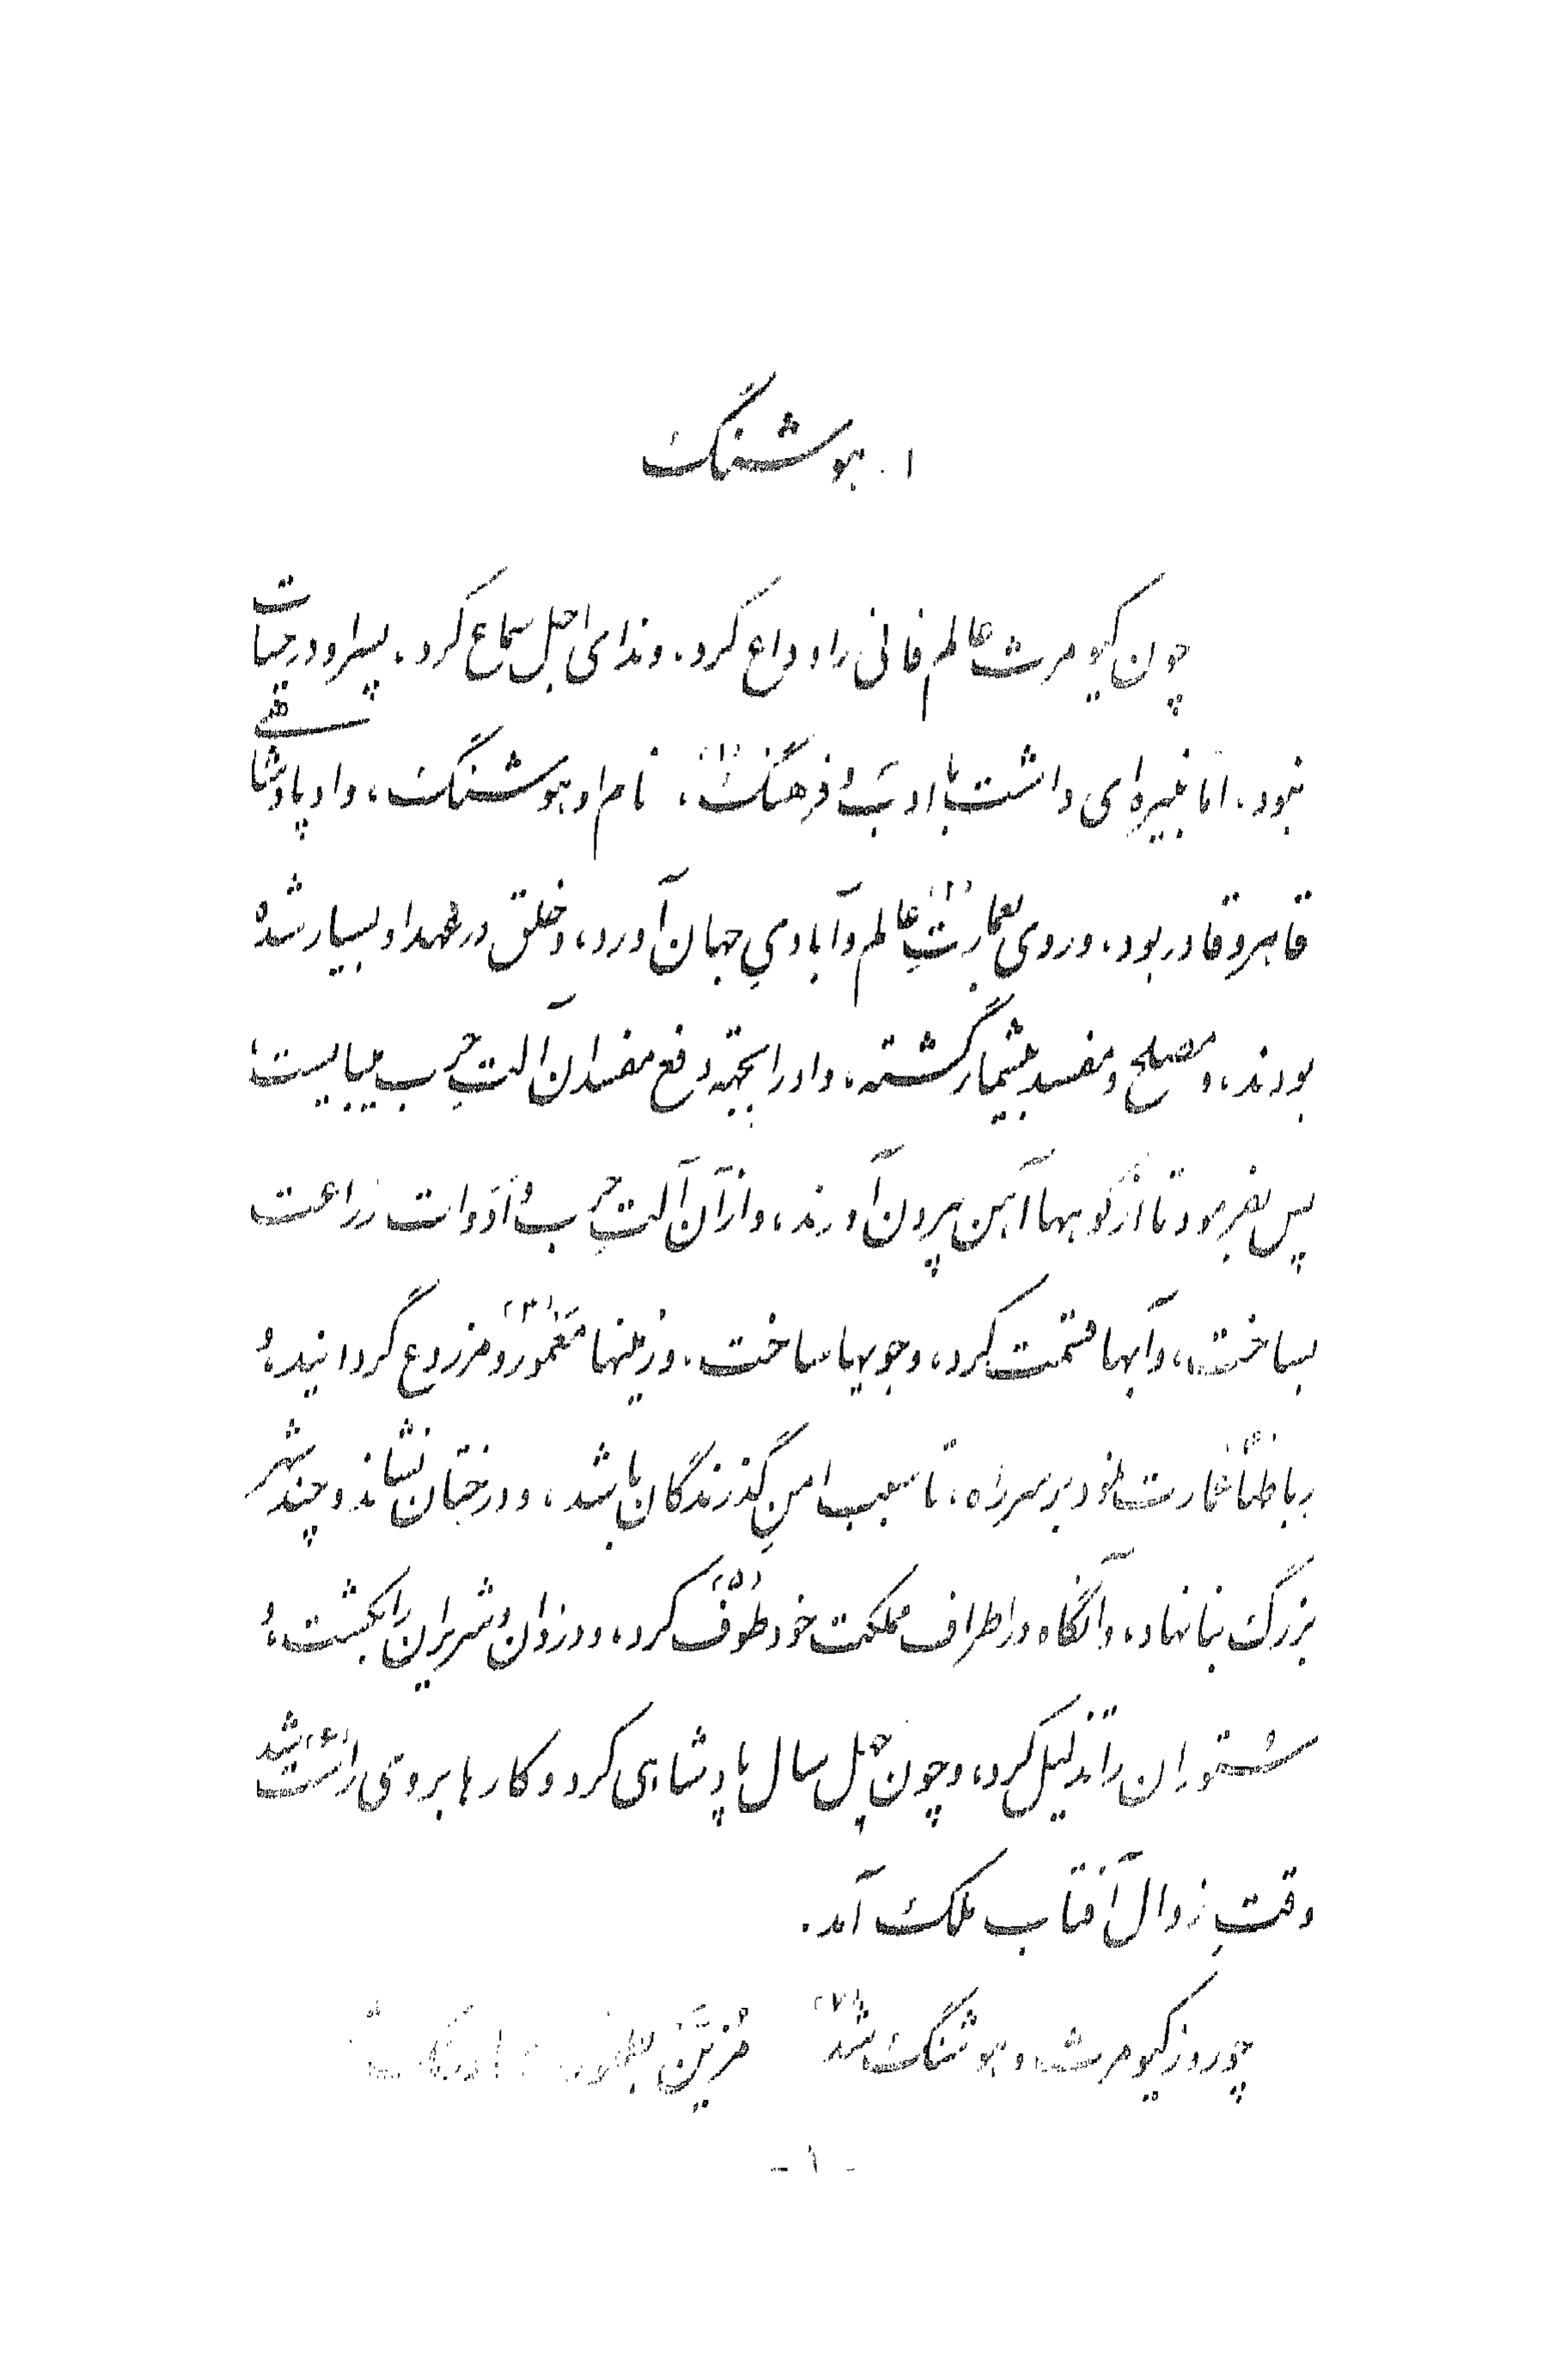 ۱. هوشنگ
چون کیومرث عالم فانی را وداع کرد. و ندای اجل سماع کرد. پسر او در حیات
نبود. امّا نبیره‌ای داشت با ادب و فرهنگ (۱)، نام او هوشنگ، و او پادشاهی
قاهر و قادر بود، و روی بعمارتِ (۲) عالم و آبادیِ جهان آورد، و خلق در عهد او بسیار شده
بودند، و مصلح و مفسد بیشمار گشته، و او را بجهة دفع مفسدان آلتِ حرب میبایست؛
پس بفرمود تا از کوهها آهن بیرون آورند، و از آن آلتِ حرب و اَدَوات زراعت
بساخت، و آبها قسمت کرد، و جویها ساخت. و زمینها مَعْمور (۳) و مزروع گردانید، و
رباطها (۴) عمارت فرمود بر سر راه، تا سبب امنِ گذرندگان باشد، و درختان نشاند و چند شهر
بزرگ بنا نهاد، و آنگاه در اطراف مملکت خود طَوْف (۵) کرد، و دزدان و شریران را بکشت، و
سُتوران را تذلیل کرد، و چون چهل سال پادشاهی کرد و کارها بر وی راست (۶) شد
وقتِ زوال آفتاب ملک آمد.
چو روز کیومرث و هوشنگ شد (۷) مُزیَّن
- ۱ -